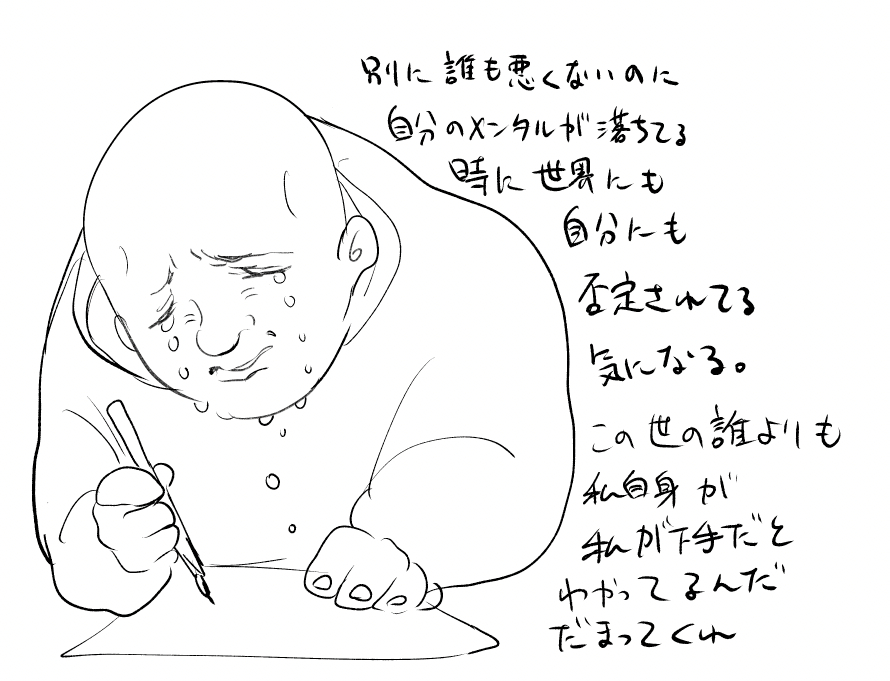 別に誰も悪くないのに
自分のメンタルが落ちてる
時に世界にも
自分にも
否定されてる
気になる。
この世の誰よりも
私自身が
私が下手だと
わかってるんだ
だまってくれ